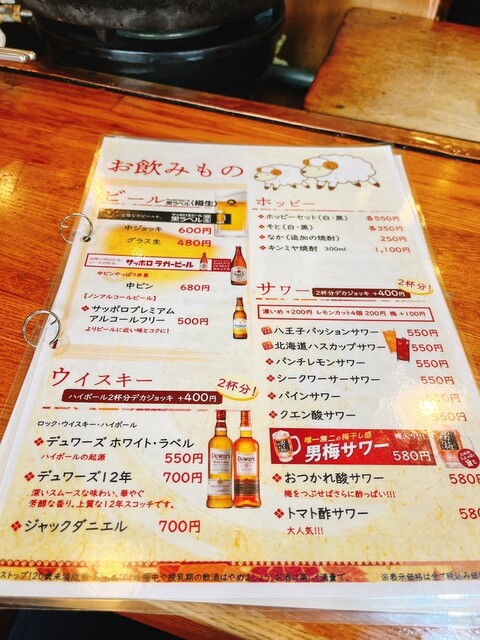 お飲みもの
ビール
黒ラベル(樽生)
中ジョッキ 600円
グラス生 480円
サッポロ ラガービール
中ビンやっぱり赤星
中ビン 680円
【ノンアルコールビール】
❖サッポロプレミアム
アルコールフリー 500円
よりビールに近い味とコクに!
ウイスキー
2杯分!
ハイボール2杯分デカジョッキ +400円
ロック・ウイスキー・ハイボール
❖デュワーズ ホワイト・ラベル
ハイボールの起源 550円
❖デュワーズ12年 700円
深いスムースな味わい、華やぐ
芳醇な香り。上質な12年スコッチです。
❖ジャックダニエル 700円
ホッピー
❖ホッピーセット(白・黒) 各550円
❖そと(白・黒) 各350円
❖なか(追加の焼酎) 250円
❖キンミヤ焼酎 300ml 1,100円
サワー
2杯分!
2杯分デカジョッキ +400円
濃いめ+200円 レモンカット4個 200円 梅+100円
八王子パッションサワー 550円
北海道ハスカップサワー 550円
❖パンチレモンサワー 550円
❖シークワーサーサワー 550円
❖パインサワー 550円
❖クエン酸サワー 550円
唯一無二の梅干し感
男梅サワー 580円
梅入り!!
580円
❖おつかれ酸サワー 580円
梅をつぶせばさらに酸っぱい!!!
❖トマト酢サワー 580
大人気!!!
ストップ!20歳未満飲酒
中や授乳期の飲酒はやめましょう。お酒は楽しく適量で。
※表示価格は全て税込み価格